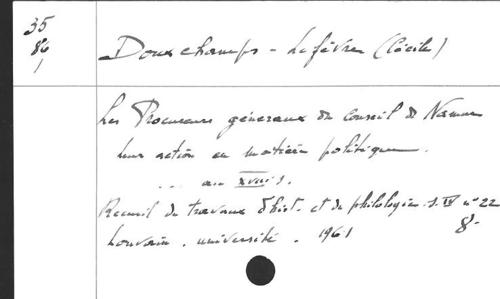 35
86
1
Douxchamps - Lefèvre (Cécile)
Les Procureurs généraux du Conseil de Namur
leur action en matière politique.
... au XVIII s.
Recueil de travaux d'hist. et de philologie. s. IV n° 22
Louvain. université. 1961 8°